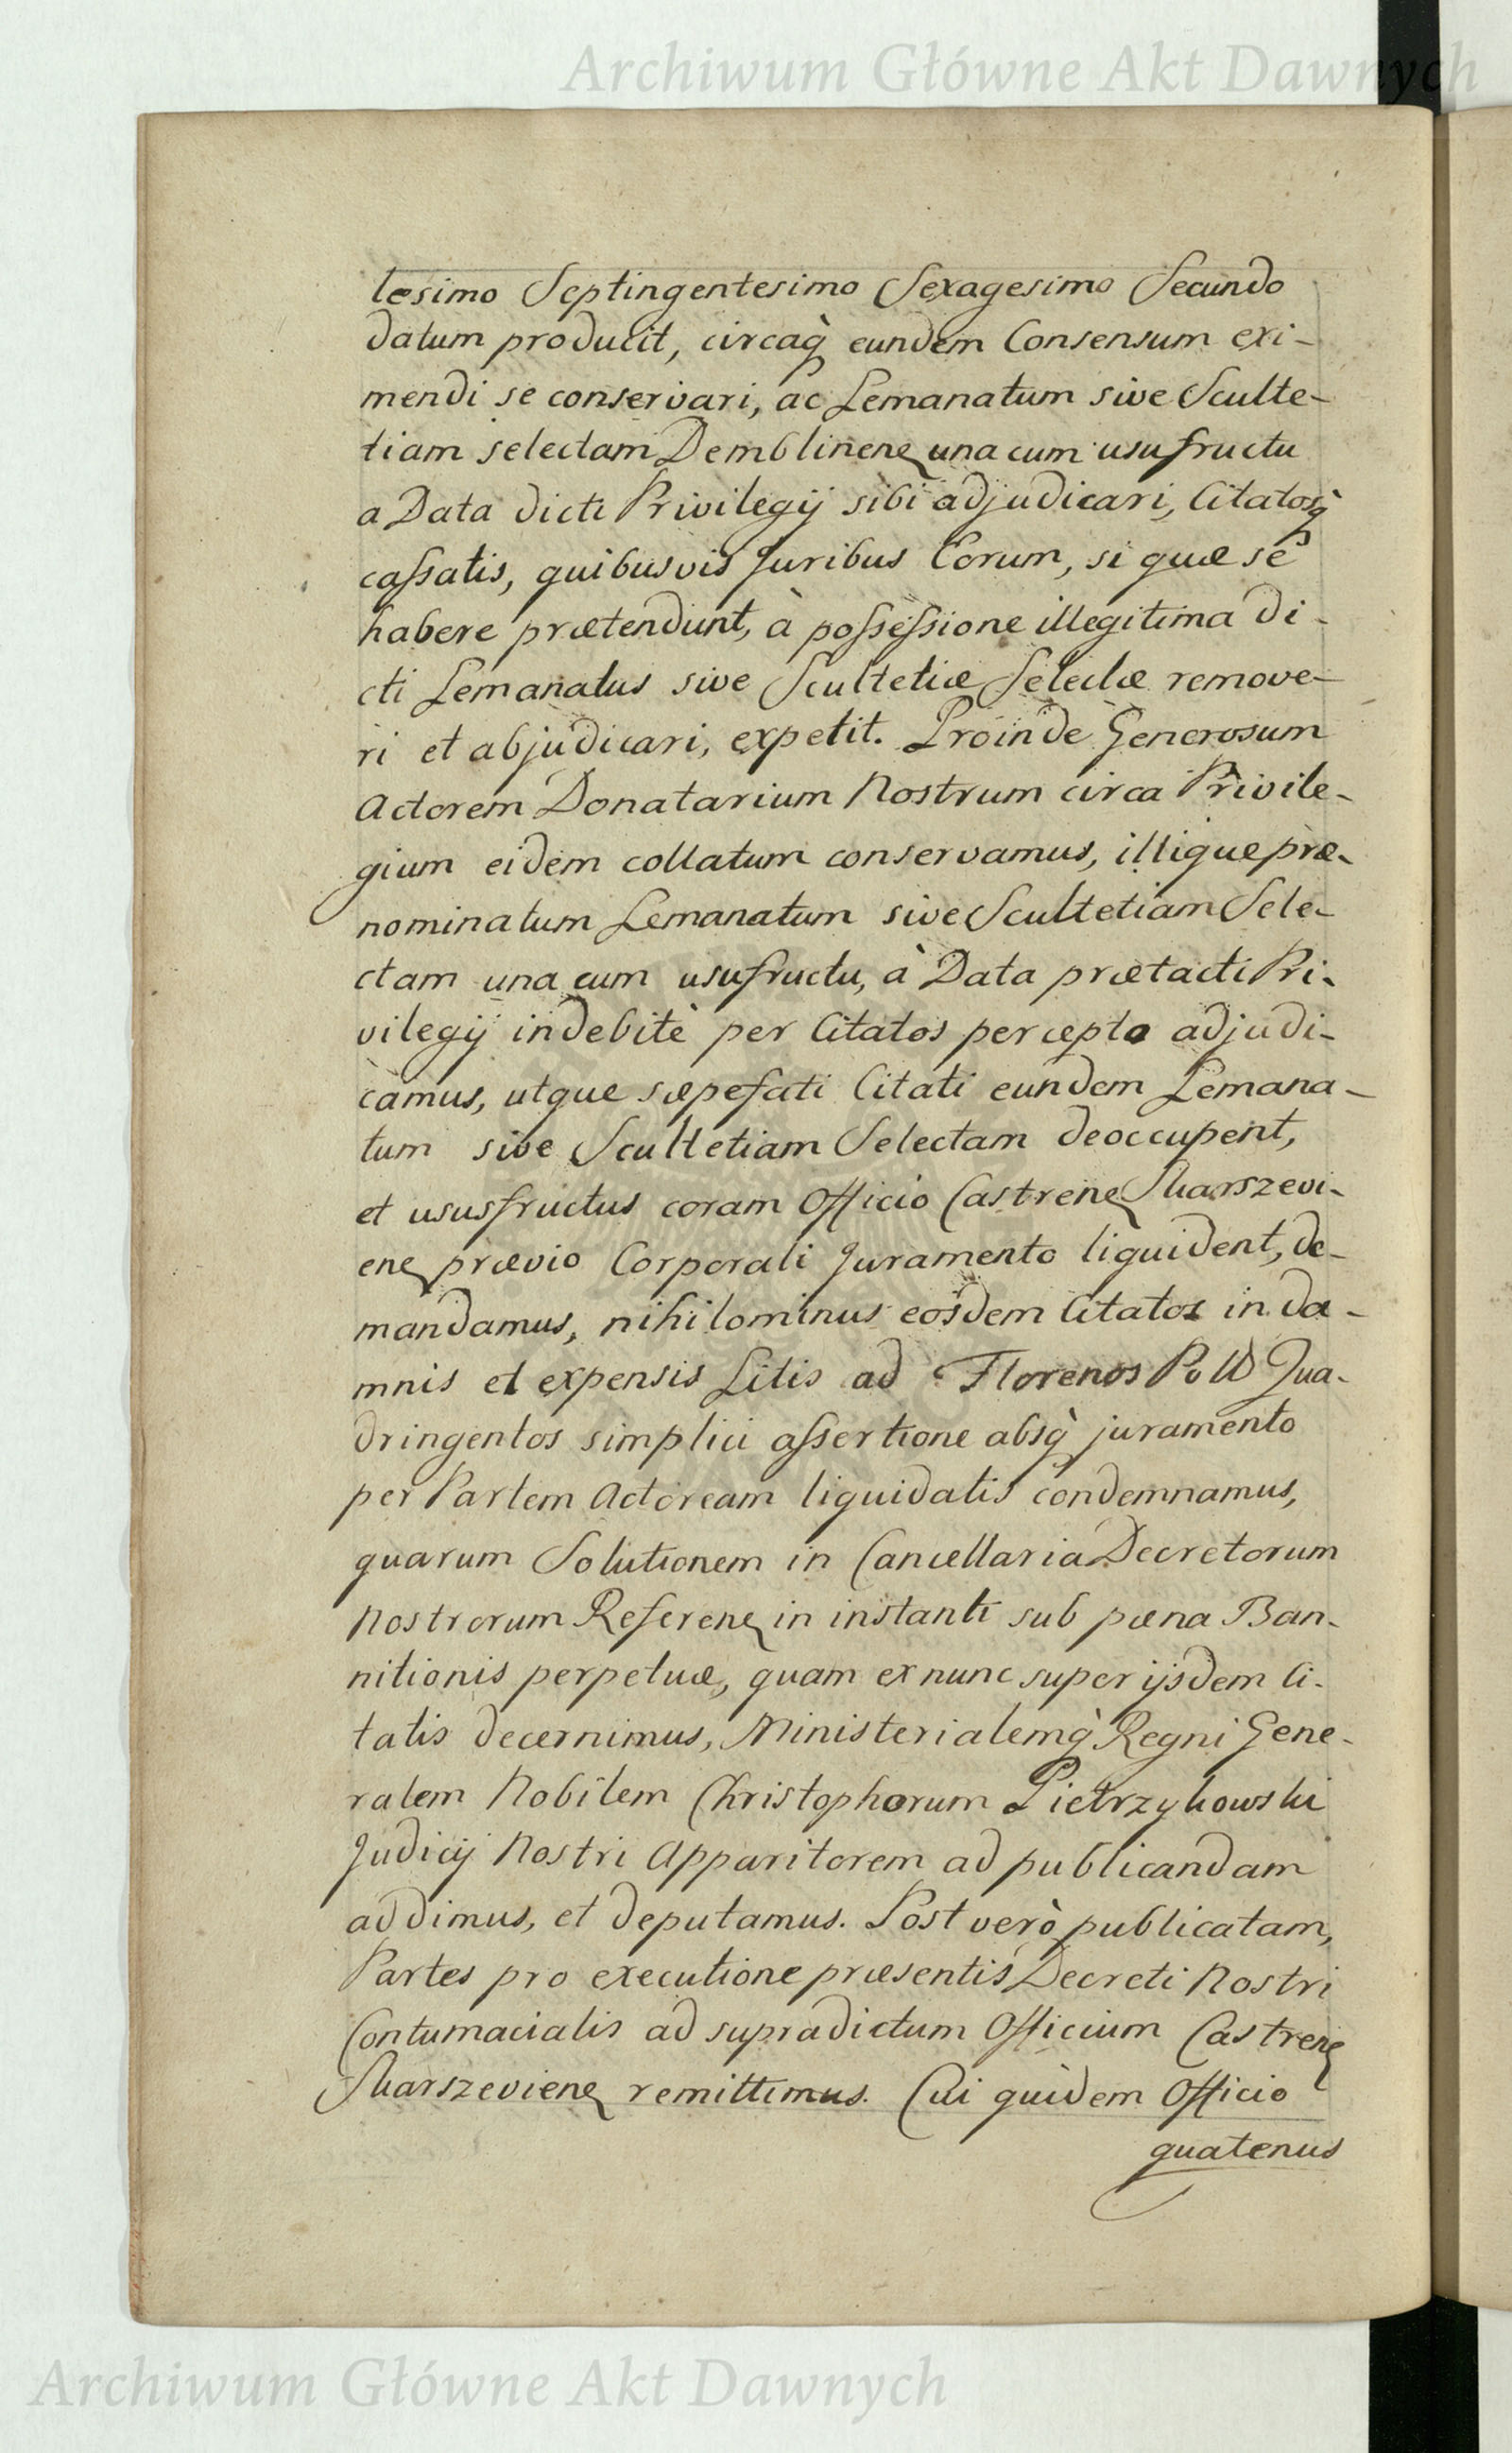 Archiwum Główne Akt Dawnych
lesimo Septingentesimo Sexagesimo Secundo
datum producit, circaq̀ eundem Consensum exi-
mendi se conservari, ac Lemanatum sive Sculte-
tiam selectam Demblinenȩ una cum usufructu
a Data dicti Privilegij sibi adjudicari, Citatosq̀
cassatis, quibusvis Juribus Eorum, si quæ se
habere prætendunt, à possessione illegitima di-
cti Lemanatus sive Scultetiæ Selectæ remove-
ri et abjudicari, expetit. Proinde Generosum
Actorem Donatarium Nostrum circa Privile-
gium eidem collatum conservamus, illique præ-
nominatum Lemanatum sive Scultetiam Sele-
ctam una cum usufructu, à Data prætacti Pri-
vilegij indebitè per Citatos percepto adjudi-
camus, utque sæpefati Citati eundem Lemana-
tum sive Scultetiam Selectam deoccupent,
et ususfructus coram Officio Castrenȩ Skarszevi-
enȩ prævio Corporali Juramento liquident, de-
mandamus, nihilominus eosdem Citatos in da-
mnis et expensis Litis ad Florenos Poll Qua-
dringentos simplici assertione absq̀ juramento
per Partem Actoream liquidatis condemnamus,
quarum Solutionem in Cancellaria Decretorum
Nostrorum Referenȩ in instanti sub pæna Ban-
nitionis perpetuæ, quam ex nunc super ijsdem Ci-
tatis decernimus, Ministerialemq̀ Regni Gene-
ralem Nobilem Christophorum Pietrzykowski
Judicij Nostri Apparitorem ad publicandam
addimus, et deputamus. Post verò publicatam,
Partes pro executione præsentis Decreti Nostri
Contumacialis ad supradictum Officium Castrenȩ
Skarszevienȩ remittimus. Cui quidem Officio
quatenus
Archiwum Główne Akt Dawnych